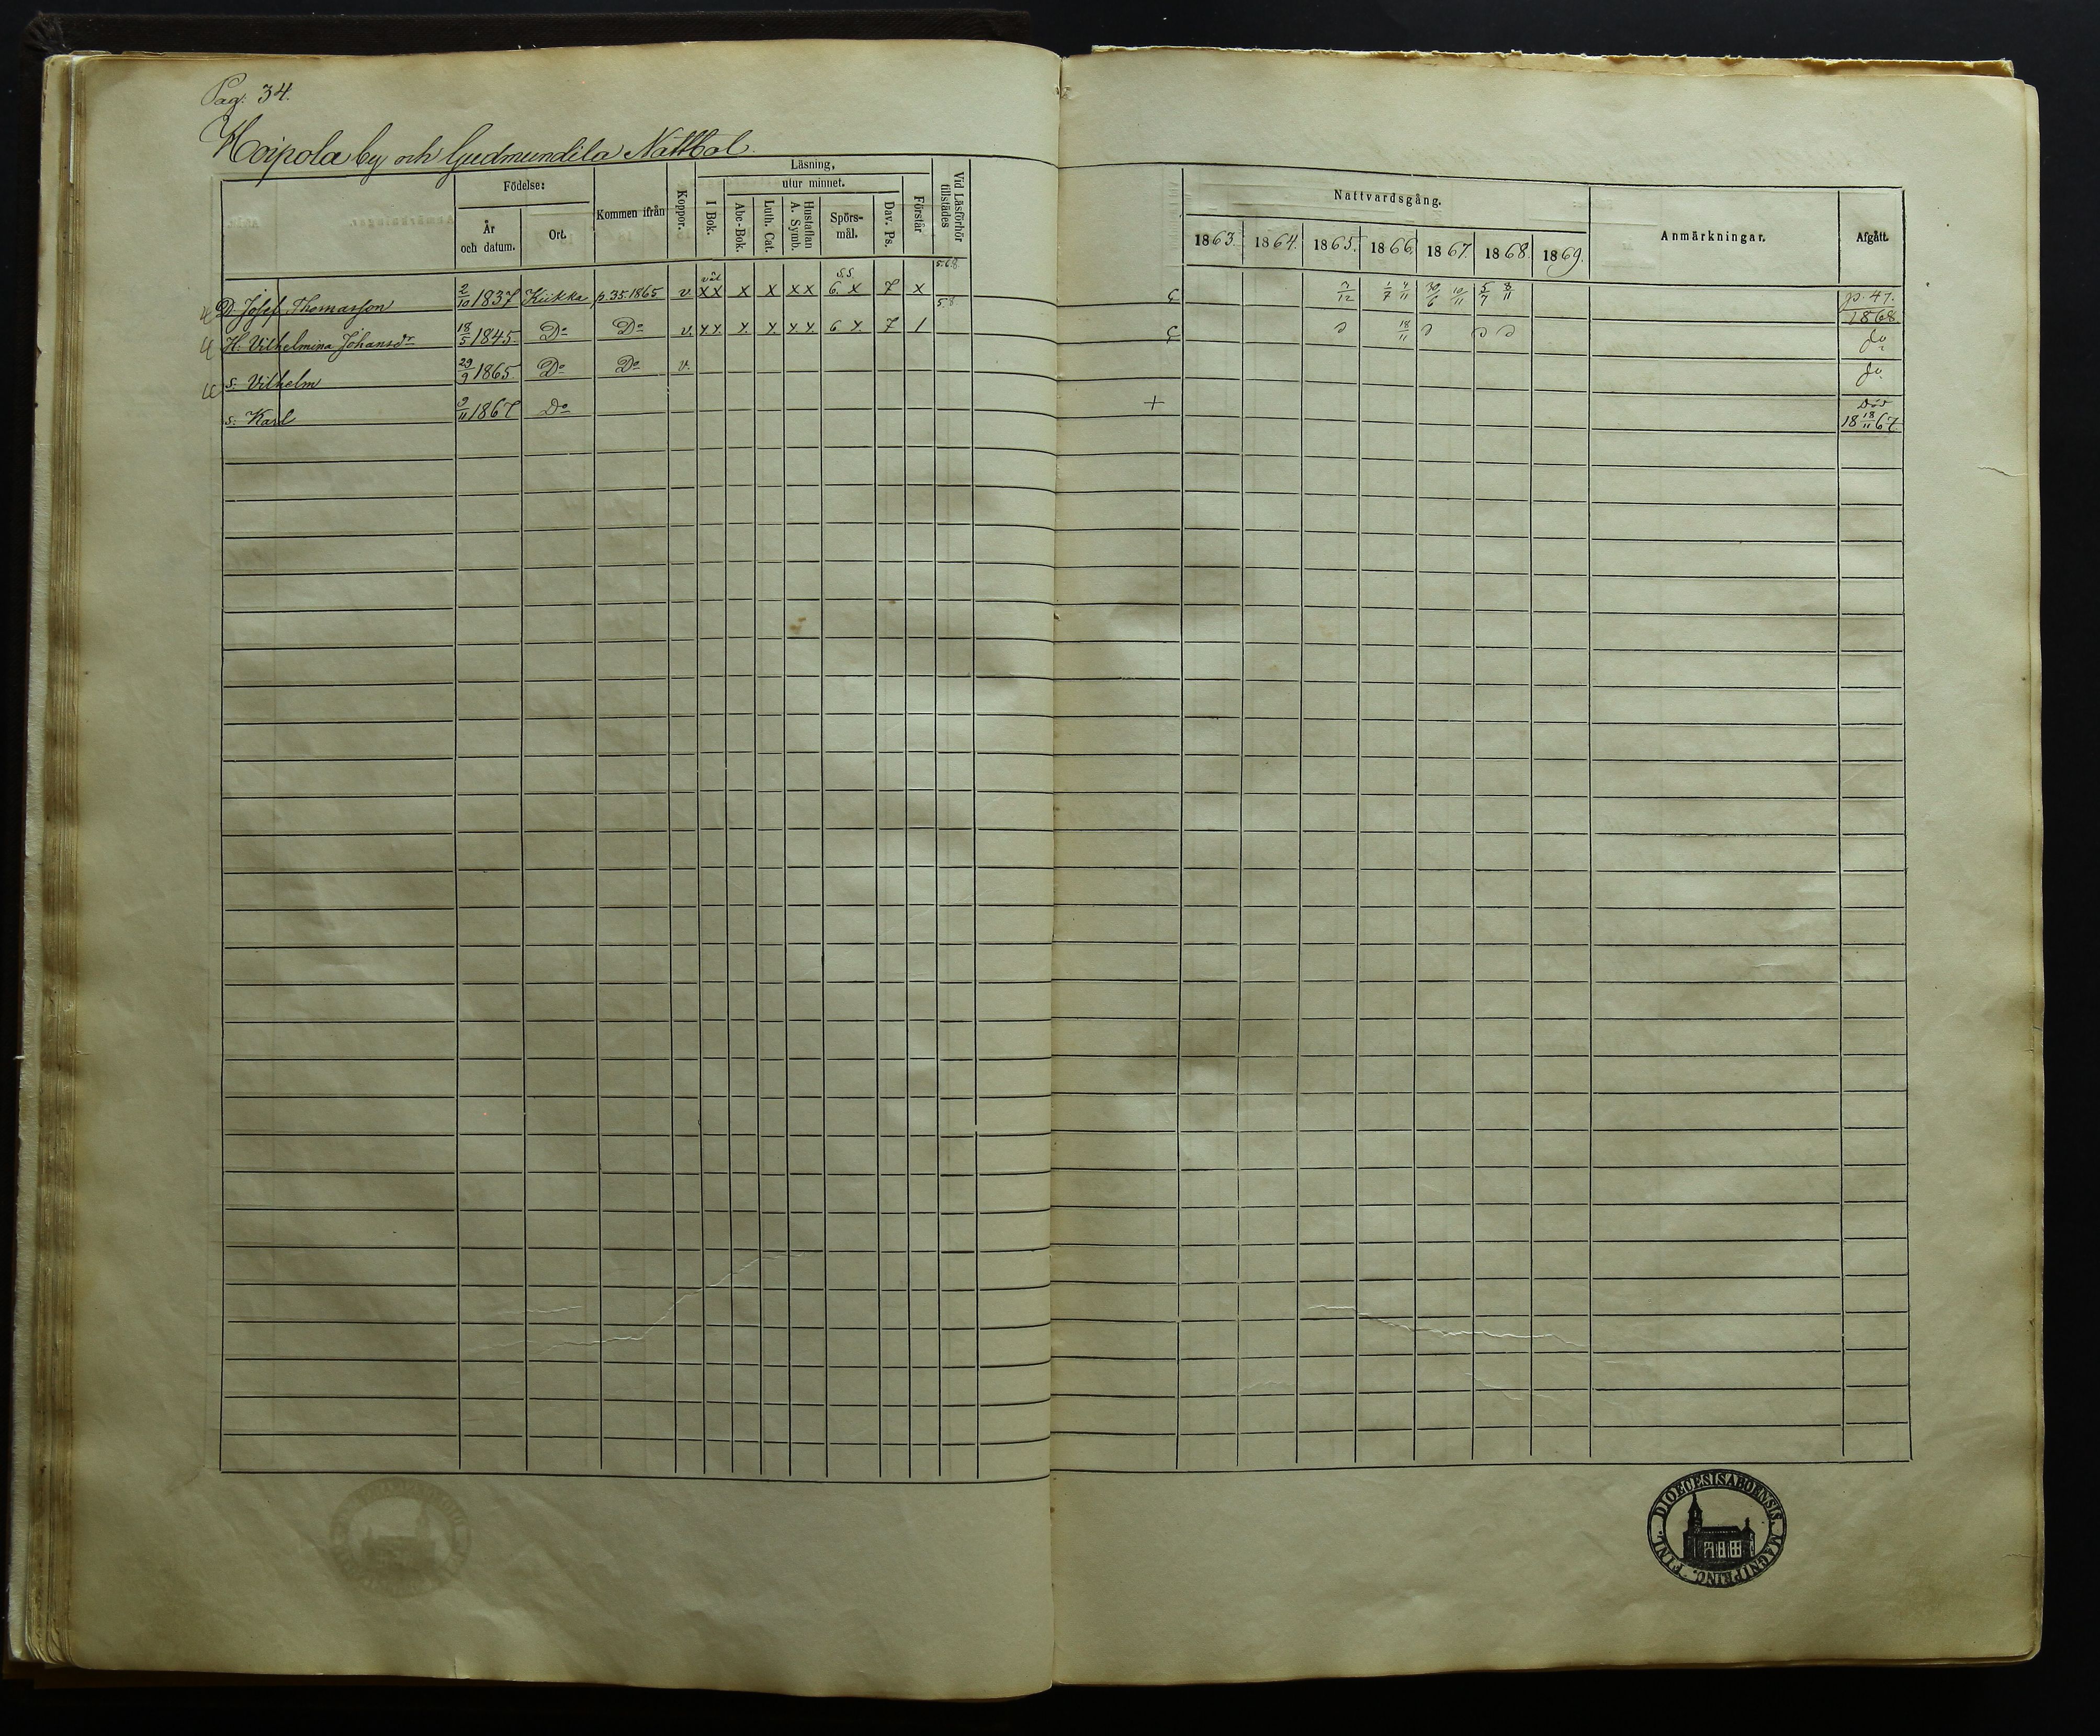 Pag: 34.
Koipola by och Gudmundila Nattbol.
Födelse: Kommen ifrån Koppor. Läsning, utur minnet. Vid Läsförhör tillstädes
År och datum. Ort. I Bok. Abc-Bok. Luth. Cat. Hustaflan A. Symb. Spörs-mål. Dav. Ps. Förstår
Nattvardsgång. Anmärkningar. Afgått.
1863. 1864. 1865. 1866. 1867. 1868. 1869.
D. Josef Thomasson 2/10 1837 Kiikka p.35.1865 v. väl XX X X XX S.S. 6. X 7 X 5.6.8 7/12 1/7 4/11 30/6 10/11 5/7 8/11 p. 47. 1868
H: Vilhelmina Johansdr 18/5 1845 Do Do v. XX X X XX 6 X 7 1 5.8 18/11 do
s: Vilhelm 29/9 1865 Do Do v. do
s: Karl 9/11 1867 Do + Död 18 18/11 67.
DIOECESIS ABOENSIS. MAGNI PRINC. FINL.